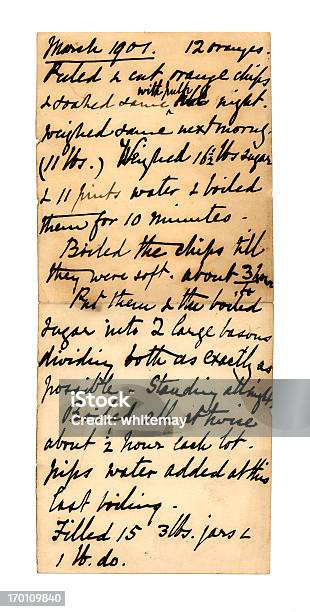 March 1901. 12 oranges.
Peeled & cut orange chips
with pulp
& soaked same all night.
weighed same next morng.
(11 lbs.) Weighed 16½ lbs sugar
& 11 pints water & boiled
them for 10 minutes.
Boiled the chips till
they were soft. about 3 hours
Put them & the boiled
sugar into 2 large basons
dividing both as exactly as
possible - Standing all night.
at twice
about ½ hour each lot.
pips water added at this
last boiling.
Filled 15 3 lbs. jars &
1 lb. do.
iStock
Credit: whitemay
170109840